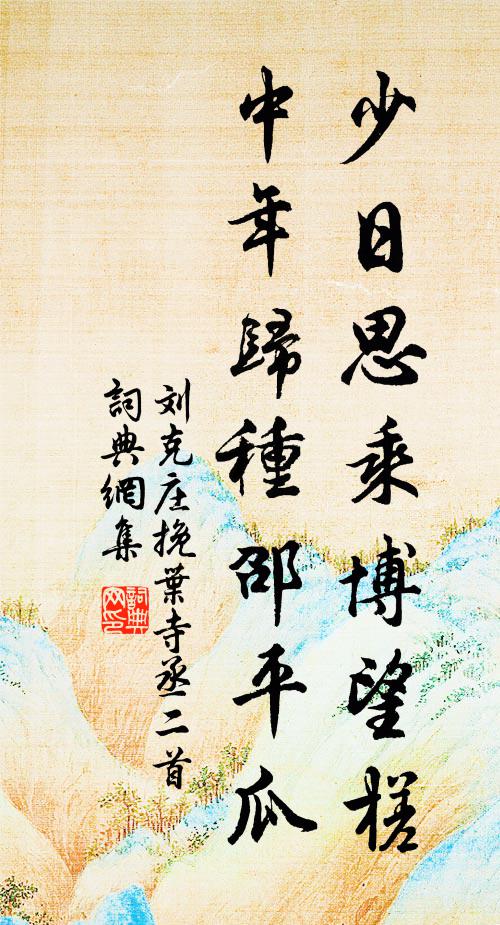 少日思乘博望槎
中年歸種邵平瓜
刘克庄挽葉寺丞二首
詞典網集
詞典網印